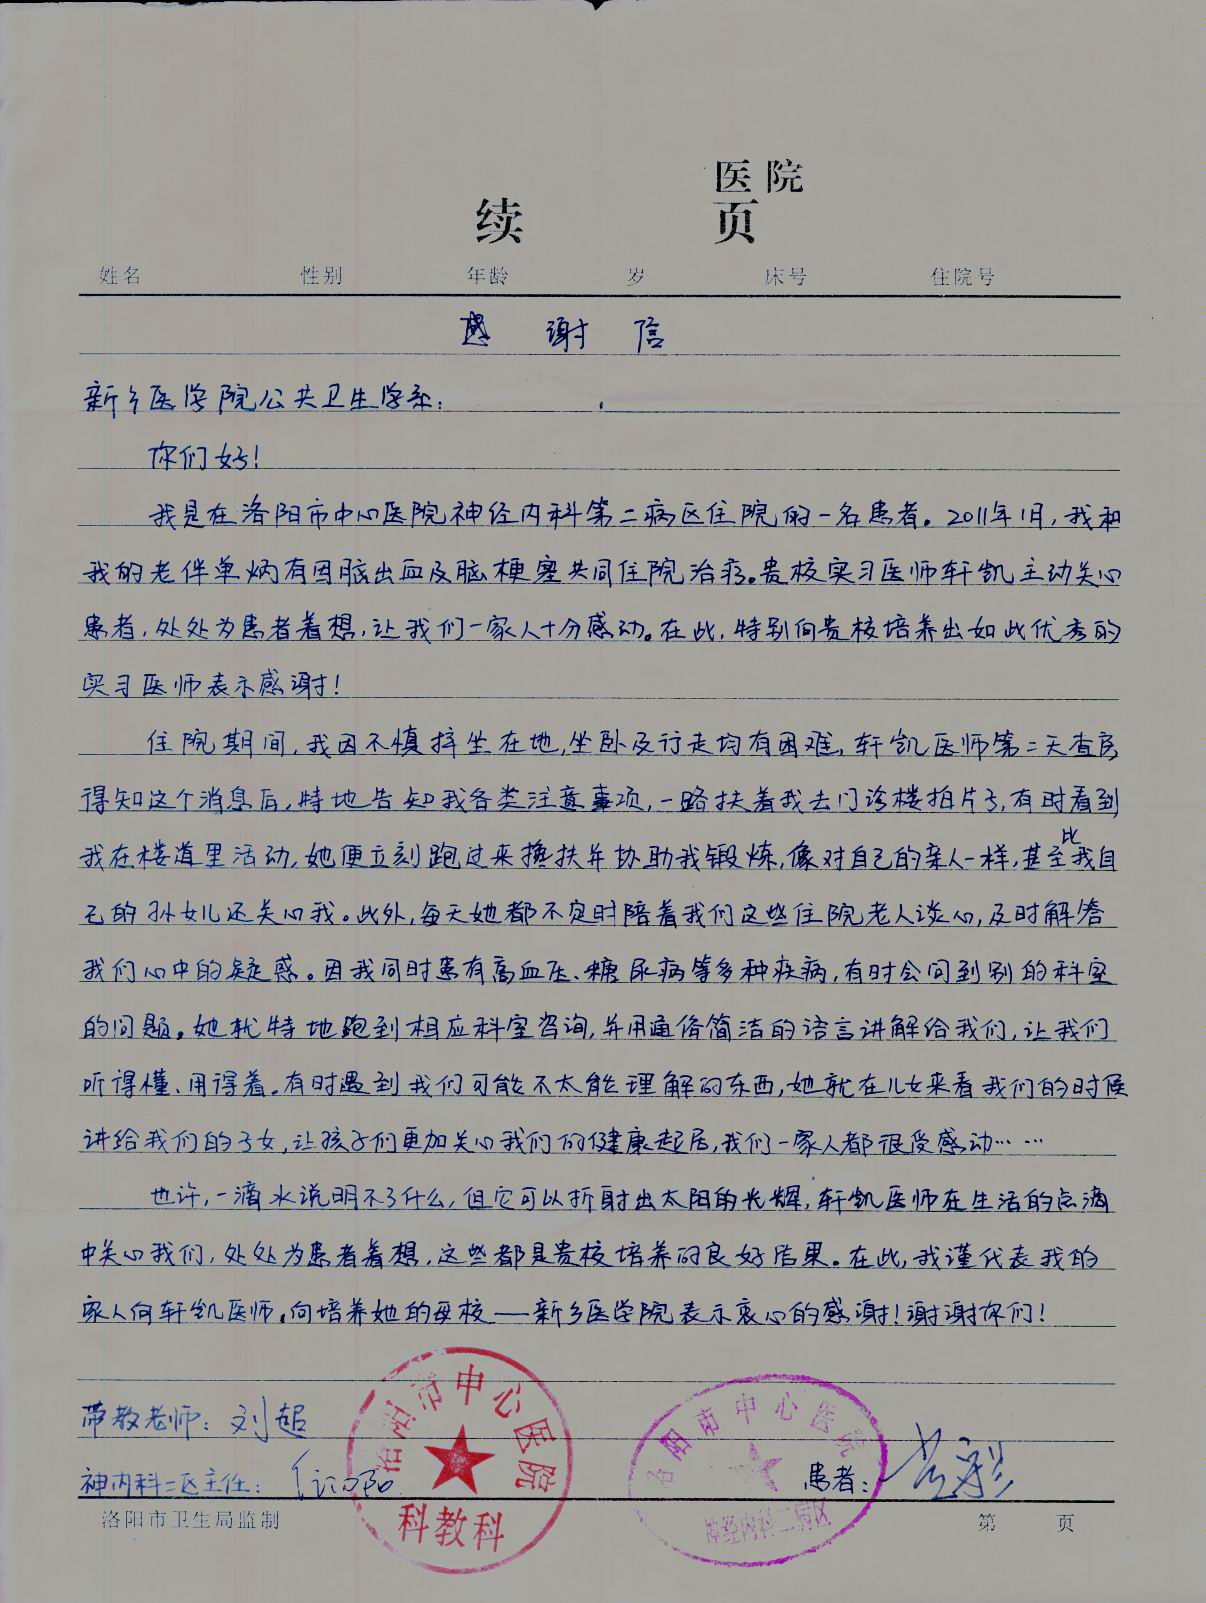 医院
续 页
姓名 性别 年龄 岁 床号 住院号
感谢信
新乡医学院公共卫生学系：
你们好！
我是在洛阳市中心医院神经内科第二病区住院的一名患者。2011年1月，我和
我的老伴单炳有因脑出血及脑梗塞共同住院治疗。贵校实习医师轩凯主动关心
患者，处处为患者着想，让我们一家人十分感动。在此，特别向贵校培养出如此优秀的
实习医师表示感谢！
住院期间，我因不慎摔坐在地，坐卧及行走均有困难，轩凯医师第二天查房
得知这个消息后，特地告知我各类注意事项，一路扶着我去门诊楼拍片子，有时看到
我在楼道里活动，她便立刻跑过来搀扶并协助我锻炼，像对自己的亲人一样，甚至比我自
己的孙女儿还关心我。此外，每天她都不定时陪着我们这些住院老人谈心，及时解答
我们心中的疑惑。因我同时患有高血压、糖尿病等多种疾病，有时会问到别的科室
的问题。她就特地跑到相应科室咨询，并用通俗简洁的语言讲解给我们，让我们
听得懂、用得着。有时遇到我们可能不太能理解的东西，她就在儿女来看我们的时候
讲给我们的子女，让孩子们更加关心我们的健康起居，我们一家人都很受感动……
也许，一滴水说明不了什么，但它可以折射出太阳的光辉，轩凯医师在生活的点滴
中关心我们，处处为患者着想，这些都是贵校培养的良好结果。在此，我谨代表我的
家人向轩凯医师，向培养她的母校——新乡医学院表示衷心的感谢！谢谢你们！
带教老师：刘超
洛阳市中心医院
科教科
洛阳市中心医院
神经内科二病区
神内科二区主任：
患者：
洛阳市卫生局监制 第 页